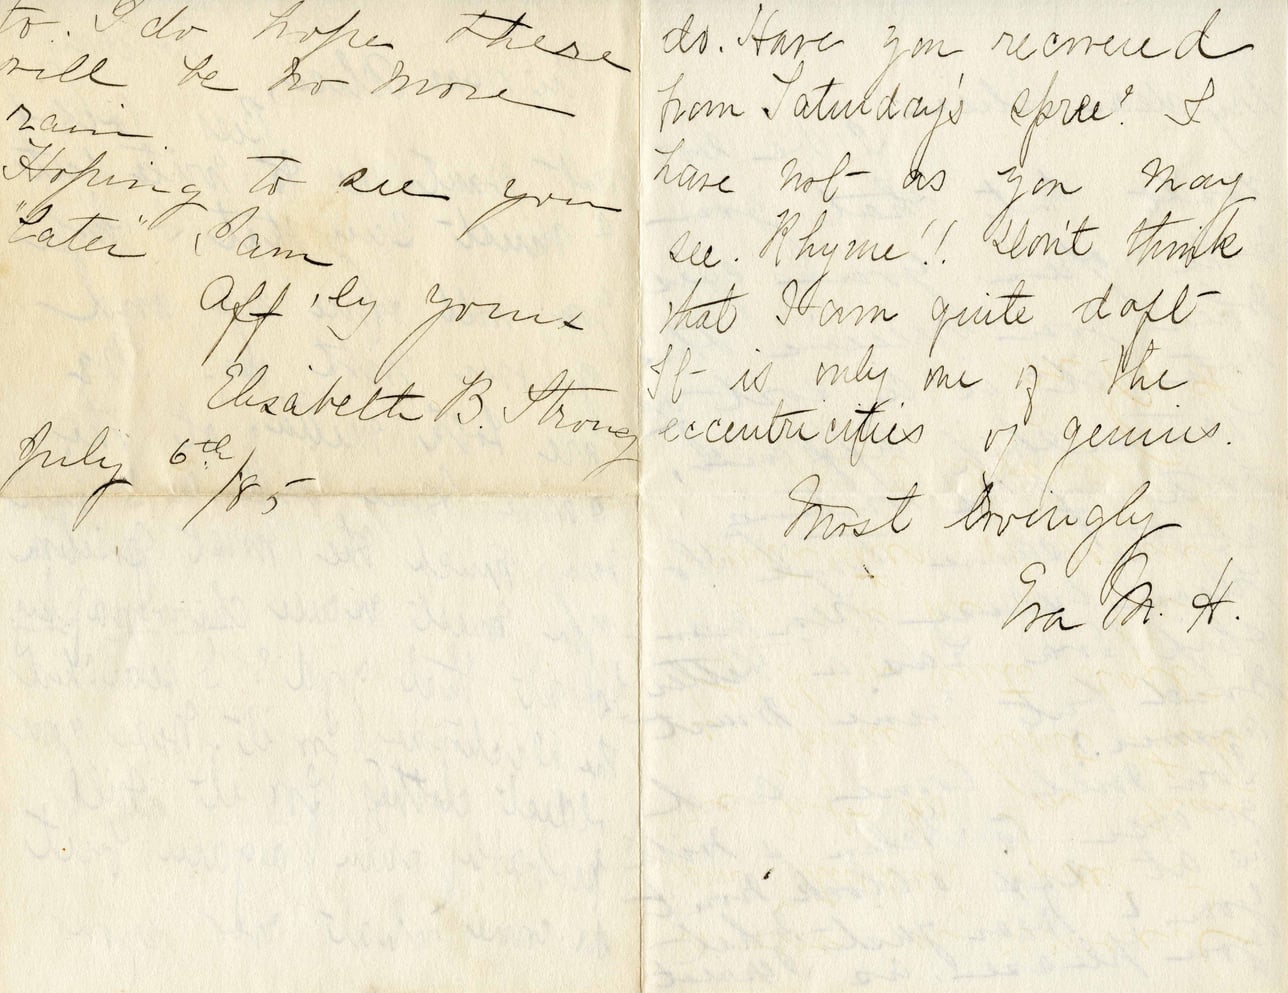 to. I do hope there
will be no more
rain.
Hoping to see you
"later" I am
Aff'ily yours
Elisabeth B. Strong
July 6th/85
do. Have you recovered
from Saturday's spree? I
have not as you may
see. Rhyme!! Don't think
that I am quite daft
It is only one of the
eccentricities of genius.
Most lovingly
Eva M. H.